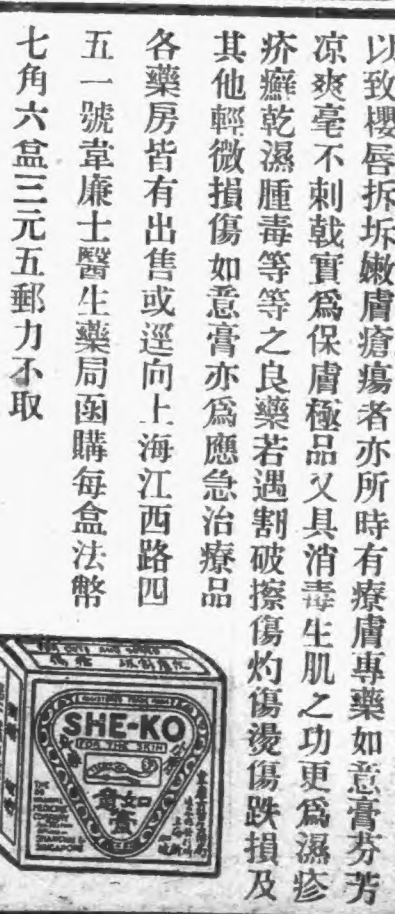 以致櫻唇拆坼嫩膚瘡瘍者亦所時有療膚專藥如意膏芬芳
凉爽毫不刺戟實爲保膚極品又具消毒生肌之功更爲濕疹
疥癬乾濕腫毒等等之良藥若遇割破擦傷灼傷燙傷跌損及
其他輕微損傷如意膏亦爲應急治療品
各藥房皆有出售或逕向上海江西路四
五一號韋廉士醫生藥局函購每盒法幣
七角六盒三元五郵力不取
SHE-KO
FOR THE SKIN
如意膏
THE
MEDICINE
COMPANY
SHANGHAI &
SINGAPORE